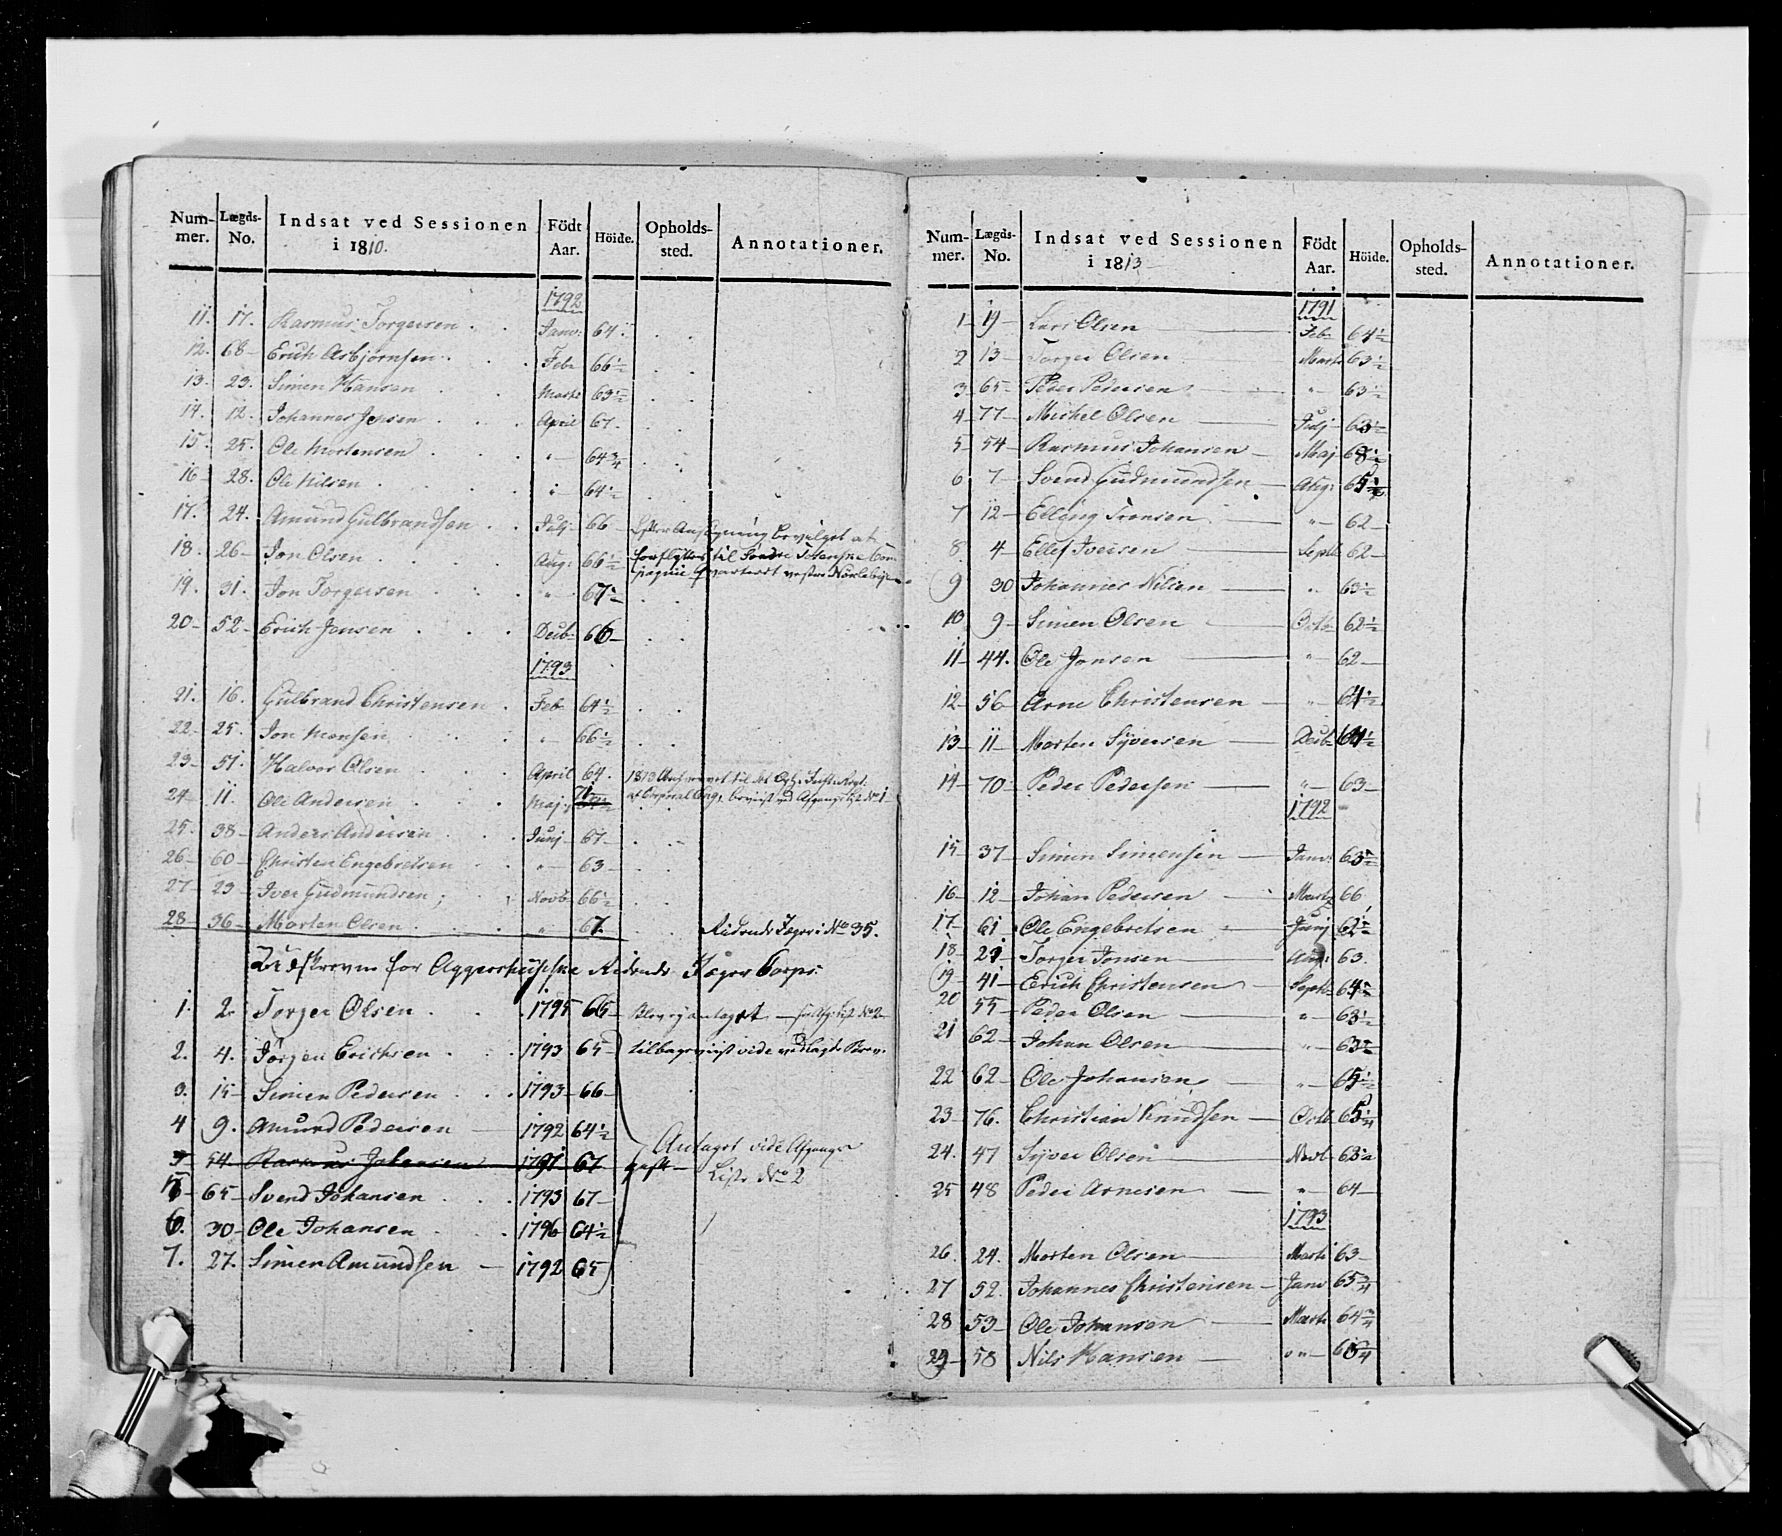 Num-mer. Lægds-No. Indsat ved Sessionen i 1810. Födt Aar. Höide. Opholds-sted. Annotationer.
1792
11. 17. Rasmus Torgersen Janv: 64.
12. 68 Erich Asbjørnsen Febr 66½
13. 23. Simen Hansen Marts 63½
14. 12. Johannes Jensen April 67.
15. 25. Ole Mortensen " 64¾
16 28. Ole Nilsen " 64½
17. 24. Amund Gulbrandsen July 66 Efter Ansøgning bevilget at
18. 26 Jon Olsen Aug: 66½ forflyttes til Søndre Totenske Com
19. 31. Jon Torgersen " 67½ pagnie
20 52 Erich Jensen Decb 66
1793
21. 16. Gulbrand Christensen Feb 64½
22. 25. Jon Monsen " 66½
23 51. Halvor Olsen April 64. 1813
24 11. Ole Andersen Maj
25. 38 Anders Andersen Junj 67
26 60 Christen Engebretsen " 63
27 23 Iver Gudmundsen Novb 66½
28 36 Morten Olsen " 67. Ridende Jæger i No 35.
Udskreven for Aggershusiske Ridende Jæger Corps:
1. 2. Torger Olsen 1795 65 Blev antaget No 2
2. 4. Jørgen Erichsen 1793 65 tilbageviist vide vedlagde Brev.
3. 15 Simen Pedersen 1793 66
4 9. Amund Pedersen 1792 64½ Antaget vide Afgangs
5 54. Rasmus Johansen 1791 67 Liste No 2
5 65 Svend Johansen 1793 67
6. 30 Ole Johansen 1796 64½
7. 27. Simen Amundsen 1792 65
Num-mer. Lægds-No. Indsat ved Sessionen i 1813 Födt Aar. Höide. Opholds-sted. Annotationer.
1791
1 19 Lars Olsen Feb 64½
2 13 Torger Olsen Marts 63½
3 65 Peder Pedersen " 63½
4 77 Michel Olsen Julj 63½
5 54 Rasmus Johansen Maj 68½
6 7 Svend Gudmundsen Aug: 65
7 12 Elling Tronsen " 62
8 4 Ellef Iversen Septb 62
9 30 Johannes Nilsen " 63½
10 9 Simen Olsen Octb 62½
11 44. Ole Jonsen " 62
12 56 Arne Christensen " 64½
13 11 Morten Syversen Decb 64½
14 70 Peder Pedersen " 63
1792
15 37 Simen Simensen Janv: 63½
16 12 Johan Pedersen Marts 66
17 61 Ole Engebretsen Junj 62½
18 21 Torger Jonsen Aug: 63.
19 41 Erich Christensen Septb 64½
20 55 Peder Olsen " 63½
21 62 Johan Olsen " 63½
22 62 Ole Johansen " 65½
23 76. Christian Knudsen Octb 65¼
24. 47 Syver Olsen Novb 63½
25 48 Peder Arnesen " 64
1793
26. 24. Morten Olsen Marts 63
27 52. Johannes Christensen Janv 65¾
28 53 Ole Johansen Marts 64¾
29 58 Nils Hansen "